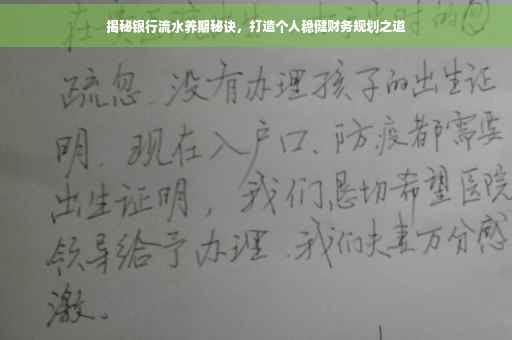 揭秘银行流水养期秘诀，打造个人稳健财务规划之道
疏忽、没有办理孩子的出生证
明、现在入户口、防疫都需要
出生证明，我们恳切希望医院
领导给予办理、我们夫妻万分感
激。